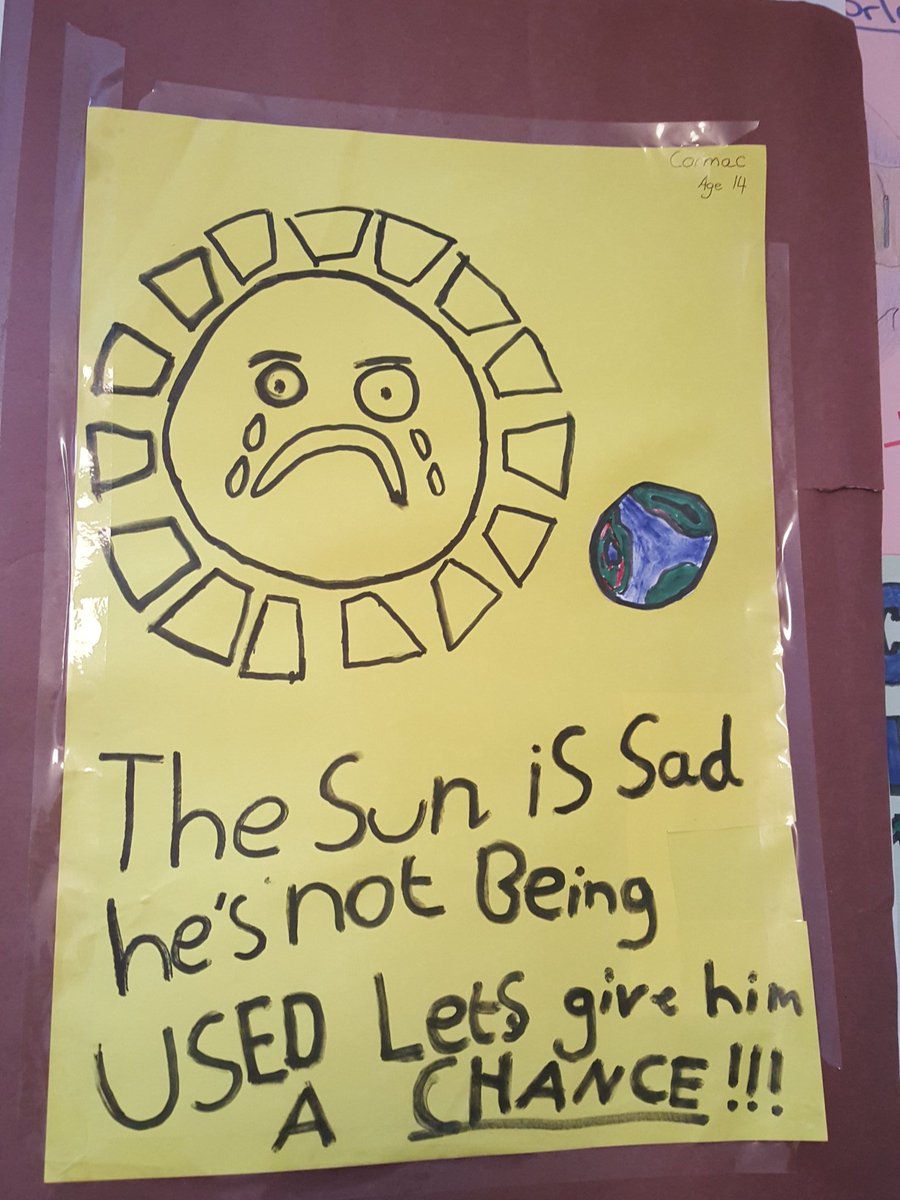 Cormac
Age 14
The Sun iS Sad
he's not Being
USED Lets give him
A CHANCE!!!